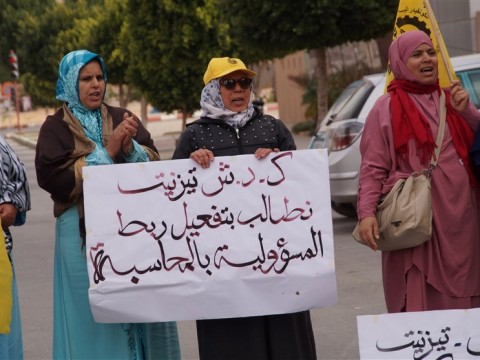 ك.د.ش تيزنيت
نطالب بتفعيل ربط
المسؤولية بالمحاسبة
ك.د.ش. تيزنيت